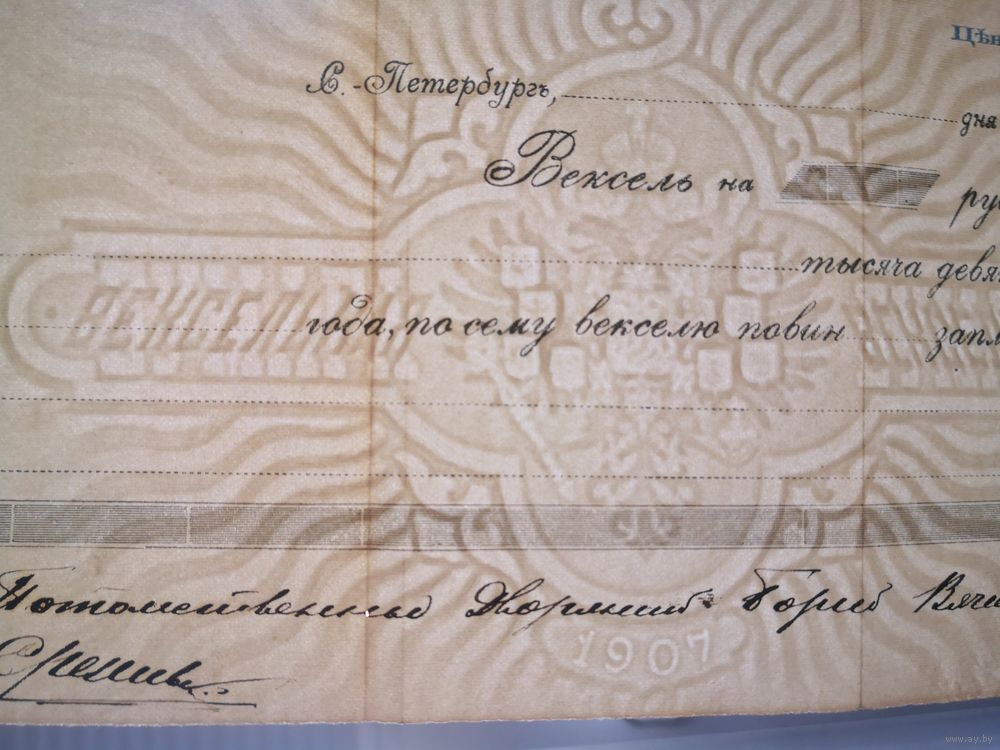 Цѣн
С.-Петербургъ, дня
Вексель на руб
тысяча девя
ВЕКСЕЛЬНАЯ
года, по сему векселю повин запл
БУМАГА
Потомственный Дворянинъ Борис Вяче
1907
www.ay.by